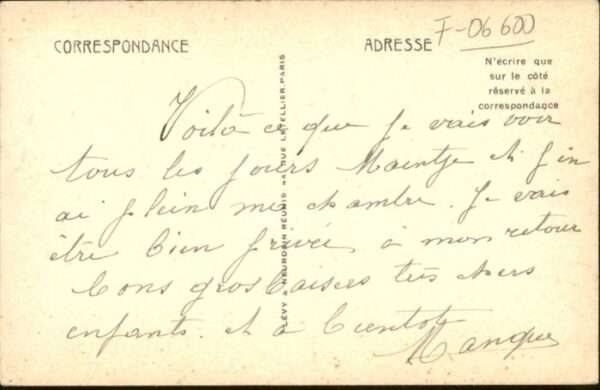 F-06600
CORRESPONDANCE
ADRESSE
N'écrire que
sur le côté
réservé à la
correspondance
Voilà ce que je vais voir
tous les jours et j'en
ai plein me chambre. Je vais
être bien privée, à mon retour
bons gros baisers très chers
enfants. et à bientot
LÉVY & NEURDEIN RÉUNIS 44 RUE LETELLIER-PARIS